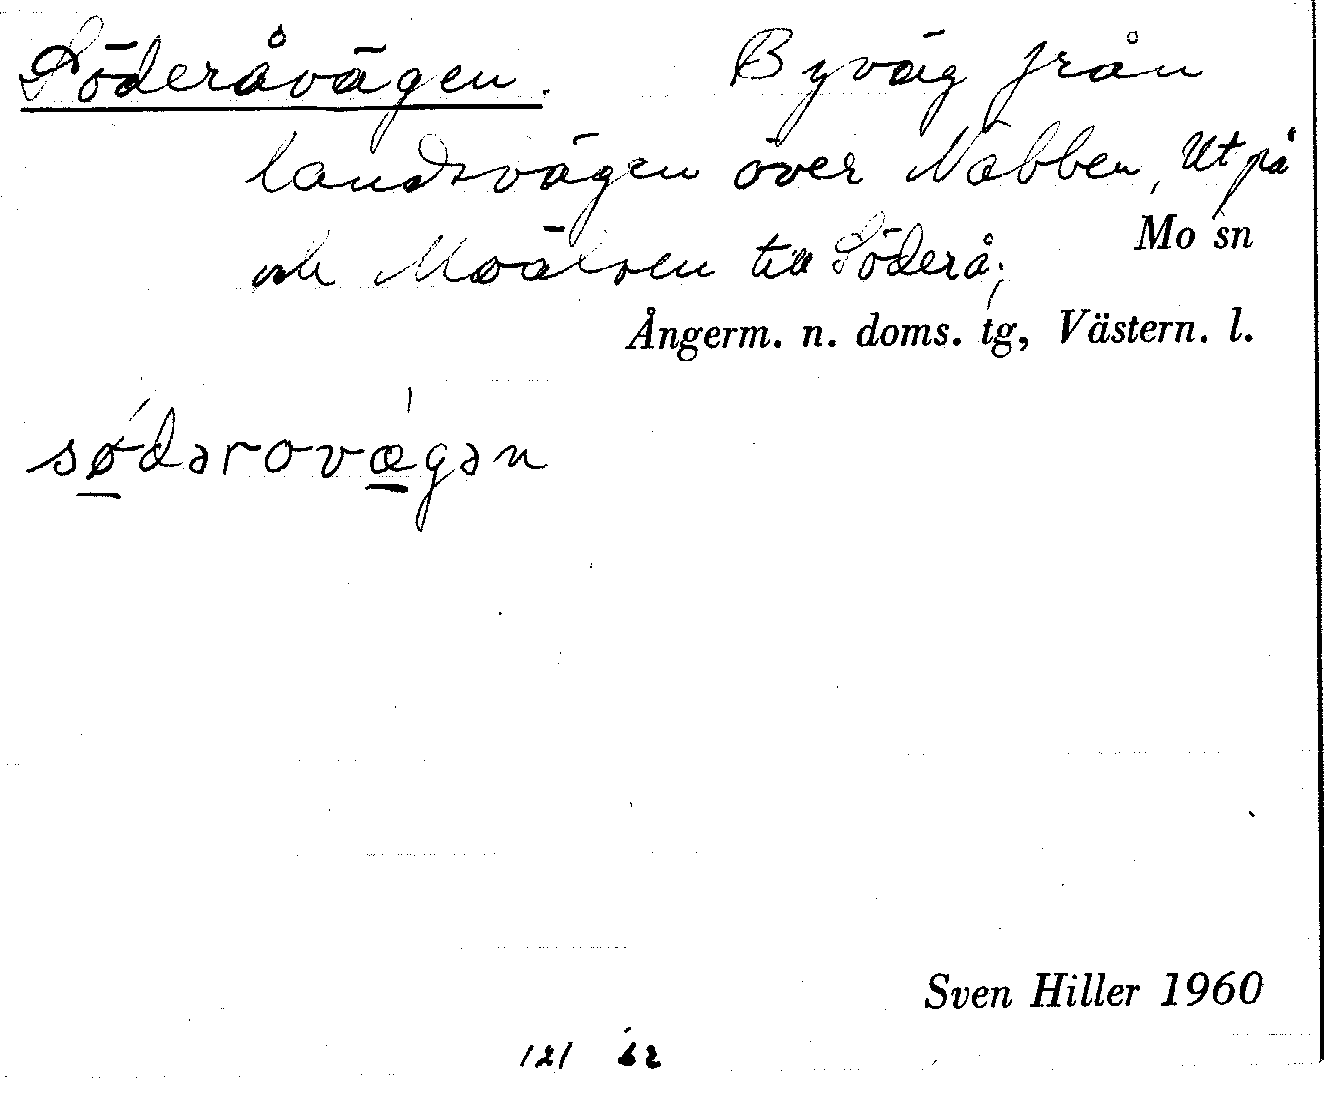 Söderåvägen. Byväg från
landsvägen över Nabben, Ut på
och Moälven till Söderå;
Mo sn
Ångerm. n. doms. tg, Västern. l.
sø̱dərovæ̱gən
Sven Hiller 1960
121 62